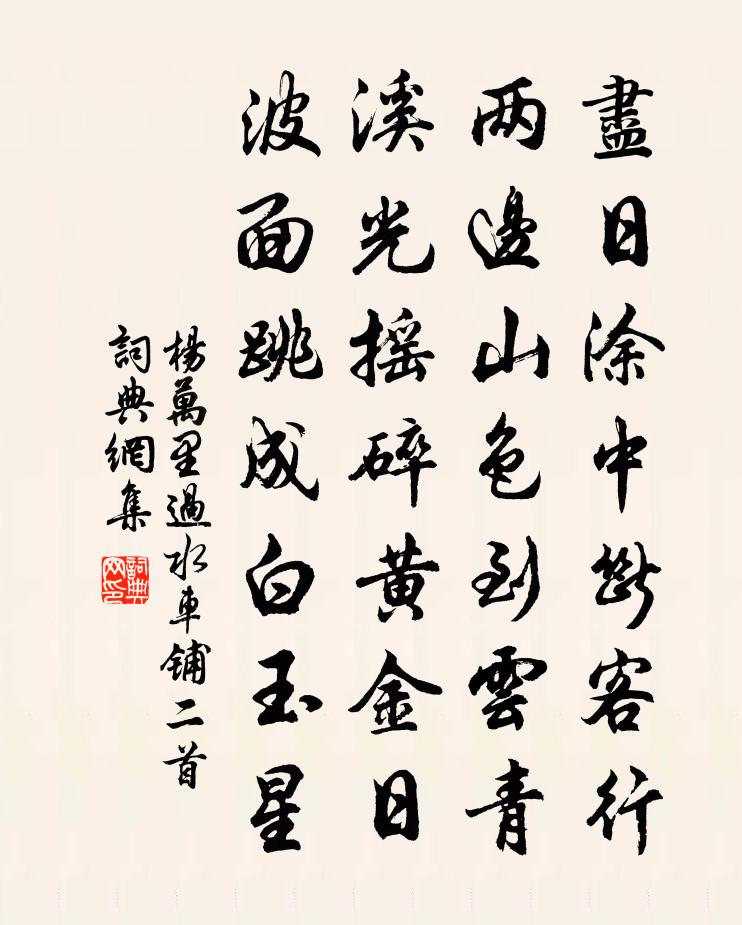 盡日涂中斷客行
两邊山色到雲青
溪光摇碎黄金日
波面跳成白玉星
楊萬里過水車鋪二首
詞典網集
詞典网印